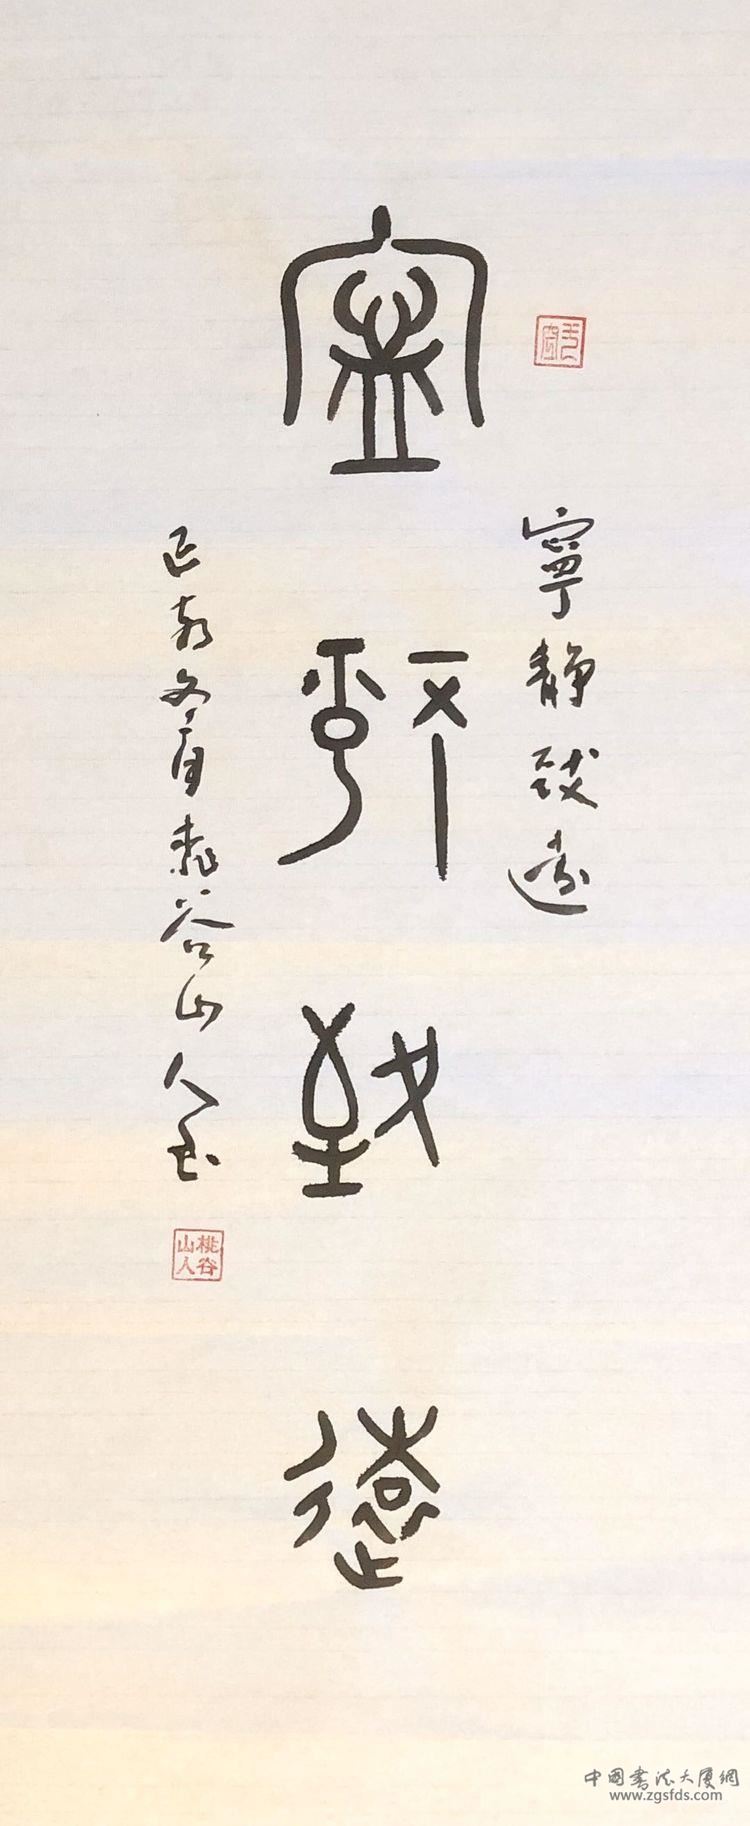 寧靜致遠
寧靜致遠
己亥冬月桃谷山人書
桃谷山人
中國書法大厦網
www.zgsfds.com